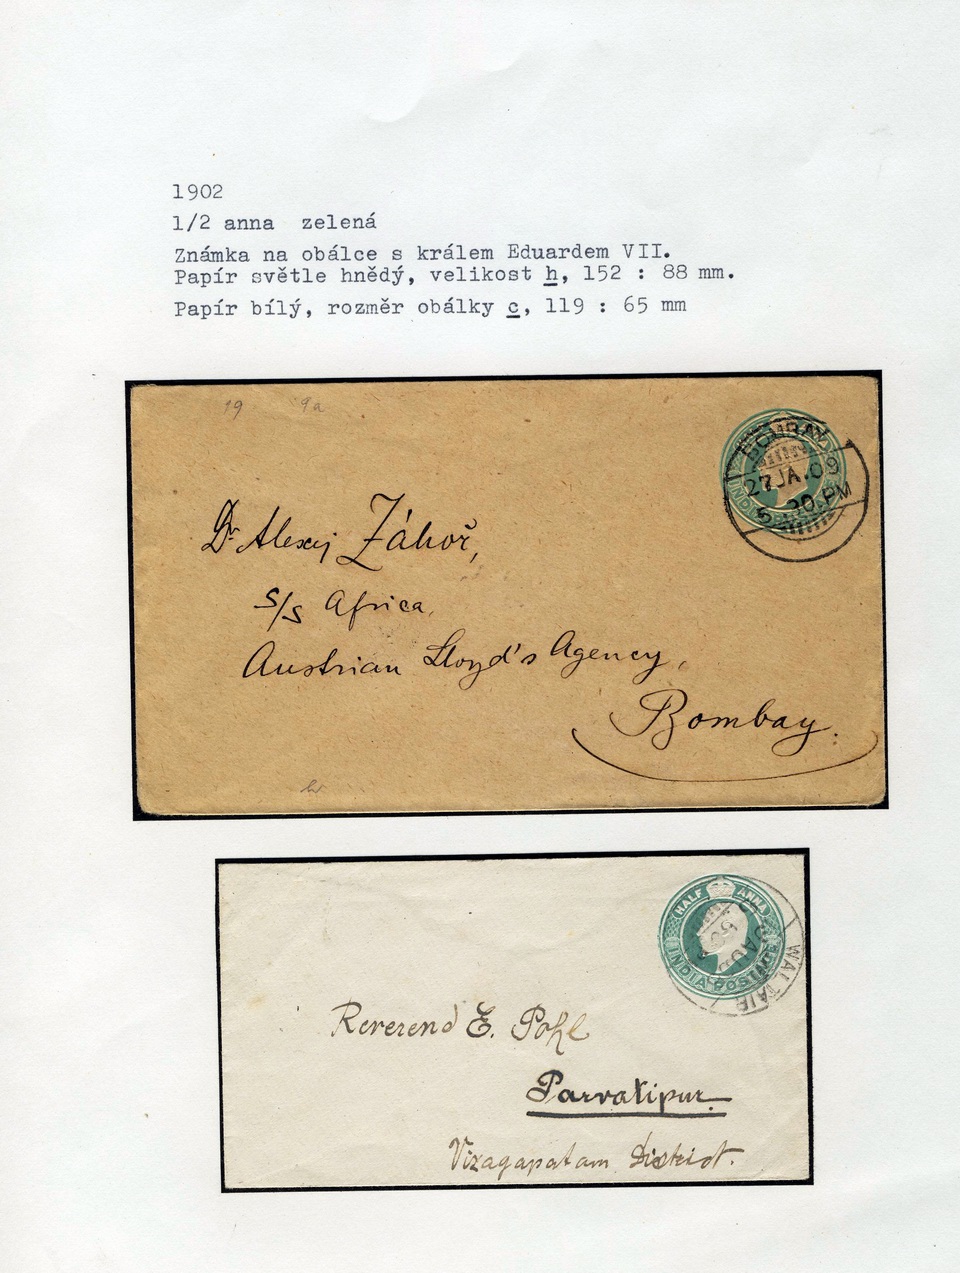 1902
1/2 anna zelená
Známka na obálce s králem Eduardem VII.
Papír světle hnědý, velikost h, 152 : 88 mm.
Papír bílý, rozměr obálky c, 119 : 65 mm
19 9a
BOMBAY
27 JA.09
5.30.PM
INDIA
Dr Alexej Záhoř,
S/S Africa,
Austrian Lloyd's Agency,
Bombay.
h
HALF ANNA
INDIA POSTAGE
WALTAIR
Reverend E. Pohl
Parvatipur
Vizagapatam District.